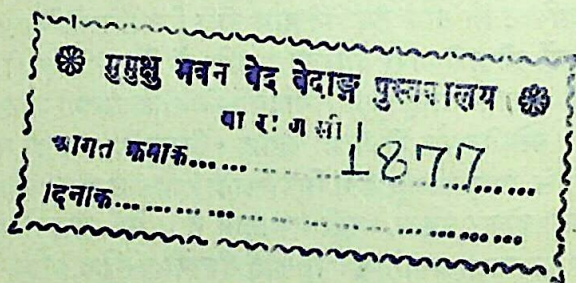 ❁ मुमुक्षु भवन वेद वेदाङ्ग पुस्तकालय ❁
वाराणसी ।
आगत क्रमाक...... 1877......
दिनाक..................